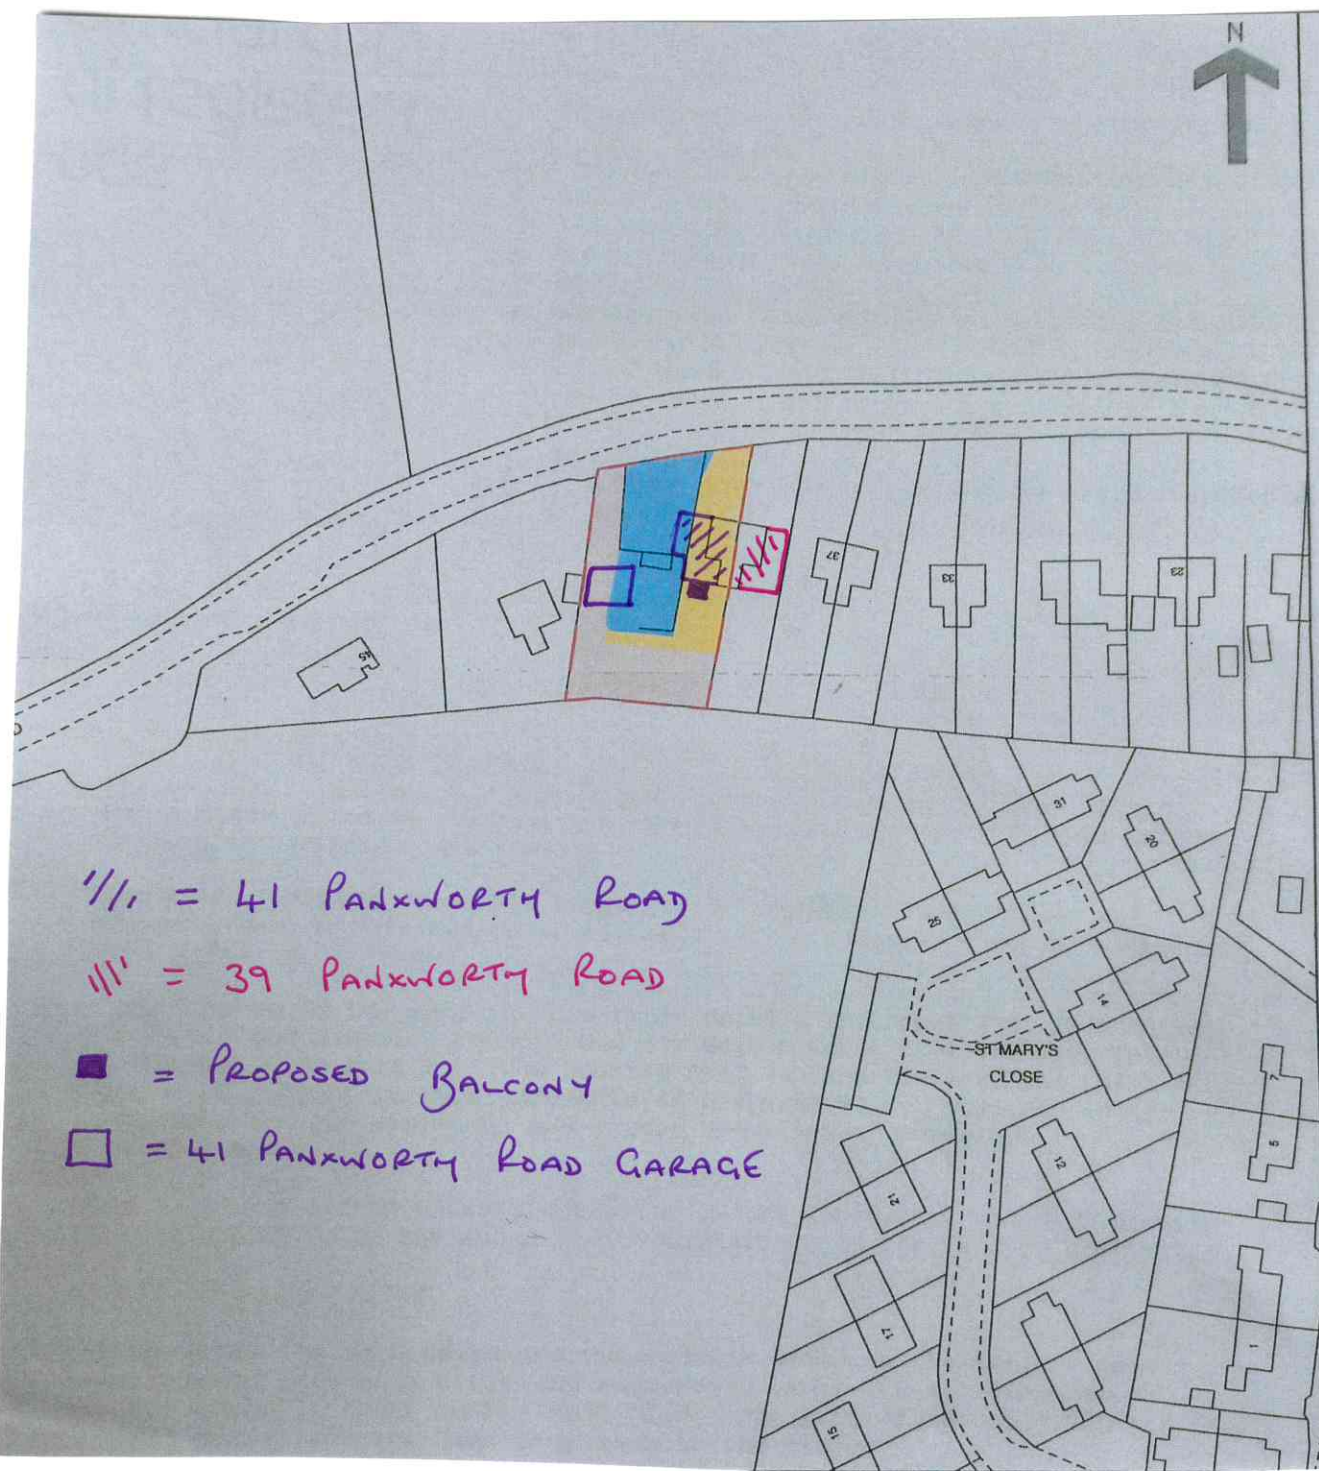 N
37
33
23
45
31
20
25
14
ST MARY'S
CLOSE
7
5
12
21
17
1
15
'//, = 41 PANXWORTH ROAD
\\\' = 39 PANXWORTH ROAD
■ = PROPOSED BALCONY
□ = 41 PANXWORTH ROAD GARAGE